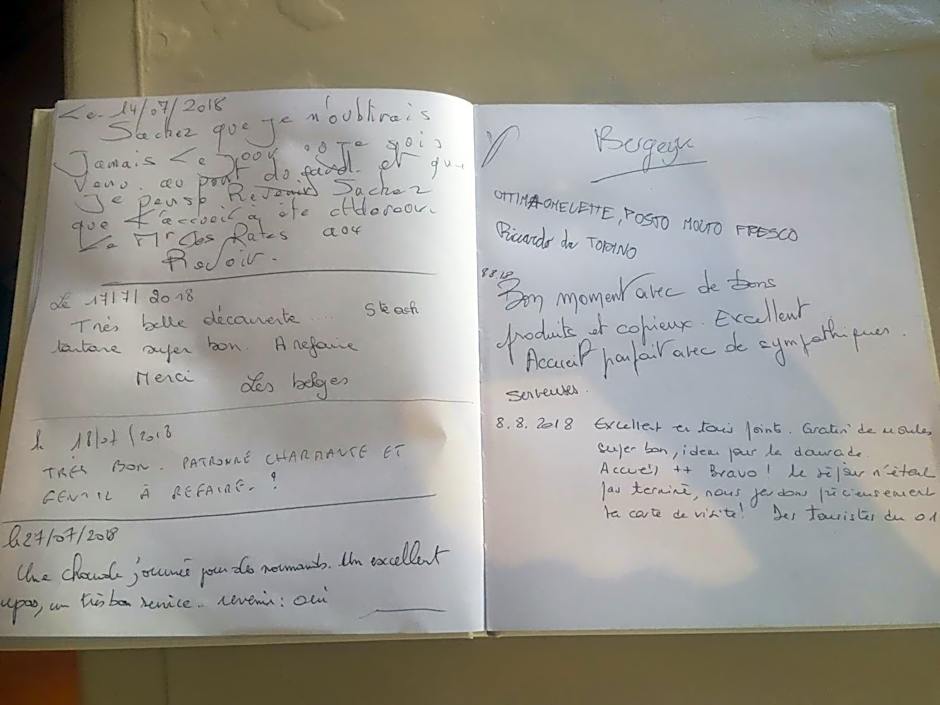 Le. 14/07/2018
Sachez que je n'oublirais
Jamais Le jour où Je sois
venu. au pont du et que
Je pense Revenir Sachez
que L'accueil a été
Le Mr des Rates aou
Revoir.
Le 17/7/2018
Très belle découverte .... Steack
tartare super bon. A refaire
Merci Les belges
le 18/07/2018
TRÈS BON. PATRONNE CHARMANTE ET
GENTIL À REFAIRE. !
le 27/07/2018
Une chaude journée pour des normands. Un excellent
repas, un très bon service.. revenir : oui
OTTIMA OMELETTE, POSTO MOLTO FRESCO
Riccardo da TORINO
8.8.18
Bon moment avec de bons
produits et copieux. Excellent
Accueil parfait avec de sympathiques
serveuses.
8.8.2018 Excellent en tous points. Gratin de moules
super bon, idem pour la daurade.
Accueil ++ Bravo ! Le séjour n'était
pas terminé, nous gardons précieusement
la carte de visite ! Des touristes du 01